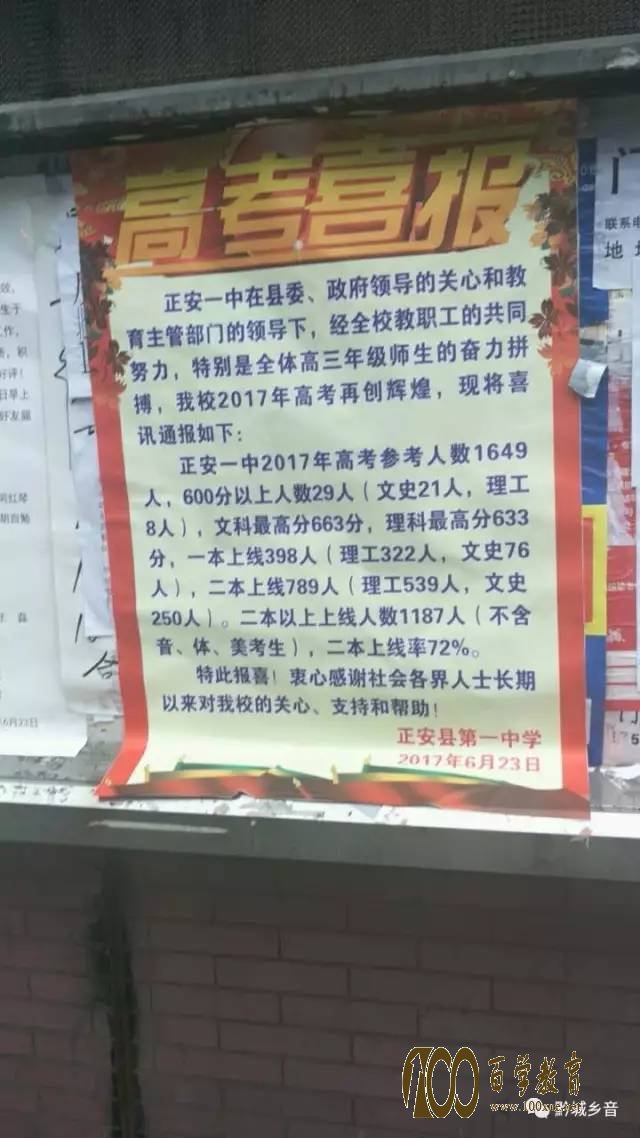 高考喜报
正安一中在县委、政府领导的关心和教
育主管部门的领导下，经全校教职工的共同
努力，特别是全体高三年级师生的奋力拼
搏，我校2017年高考再创辉煌，现将喜
讯通报如下：
正安一中2017年高考参考人数1649
人，600分以上人数29人（文史21人，理工
8人），文科最高分663分，理科最高分633
分，一本上线398人（理工322人，文史76
人），二本上线789人（理工539人，文史
250人）。二本以上上线人数1187人（不含
音、体、美考生），二本上线率72%。
特此报喜！衷心感谢社会各界人士长期
以来对我校的关心、支持和帮助！
正安县第一中学
2017年6月23日
门
联系电
地
好评！
日早上
6月23日
100百学教育
黔城乡音